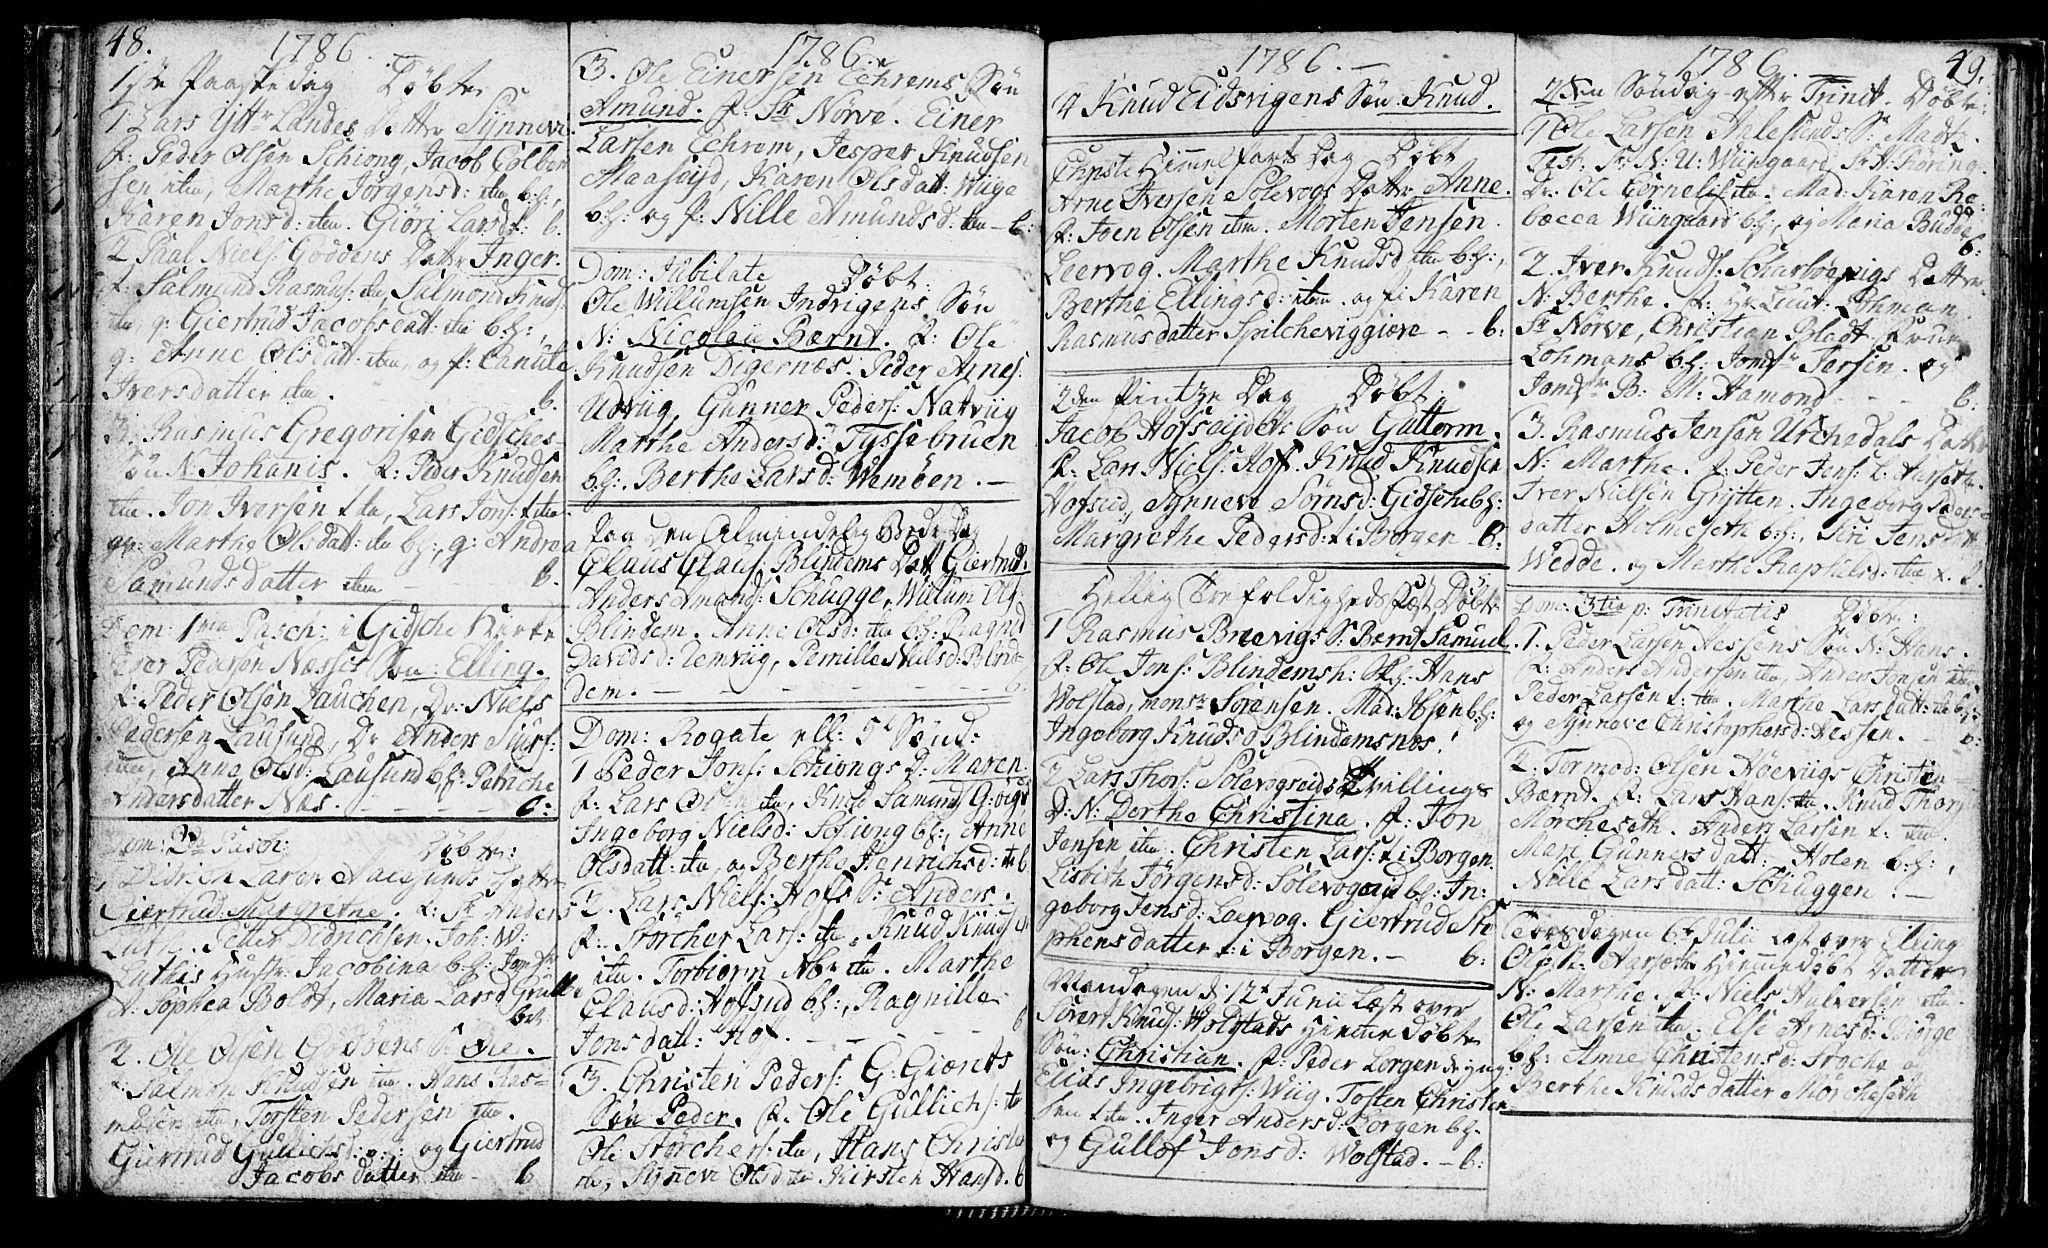 48. 1786
1ste Paaskedag Døbte
1 Lars Yttr Landes Datter Synneve
f: Peder Olsen Schiong, Jacob Colben
sen itm, Marthe Jørgensd: itm b:h:,
Karen Jonsd: itm. Giøri Larsd f: b.
2 Paal Niels: Goddens Datr Inger.
f: Salmund Rasmus: itm, Salmond Knuds:
itm, g: Giertrud Jacobsdatt: itm b:h:,
g: Anne Olsdatt: itm, og f: Canute
Iversdatter itm. b.
3. Rasmus Gregorisen Gidsches
Søn N. Johanis. f: Peder Knudsen
itm. Jon Iversen f itm, Lars Jons: f. itm
gp: Marthe Olsdatt: itm b:h:, g: Andrea
Samunds datter itm b.
Dom: 1ma Pasch: i Gidsche Kirke
Iver Pedersen Næsses Søn: Elling.
f: Peder Olsen Lauchen, Dr: Niels
Pedersen Lausund, Dr Anders Siurs:
itm, Anne Olsd: Lausund b:h: Perniche
Andersdatter Næs. b:
Dom: 2da Pasch: Døbte:
1 Didrich Larsen Aalesunds Datter
Giertrud Margrethe. f: Sr Anders
Luth. Petter Didrichsen. Joh: W:
Luthis Hustr: Jacobina b:h: Jomfr
A: Sophia Boldt, Maria Larsd Grutle
b:h
2. Ole Olsen Goddens S: Ole.
f. Salmon Knudsen itm. Hans Ras=
musen itm, Torsten Pedersen itm.
Giertrud Gullichsd: og Giertrud
Jacobs datter itm - b
1786.
3. Ole Einersen Echrems Søn
Amund. f: Sr Nørve. Einer
Larsen Echrem, Jesper Knudsen
Maaseijd, Karen Olsdatt: Wiige
b:h: og f: Nille Amundsd: itm - b:
Dom: Jubilate Døbt:
Ole Willumsen Indvigens Søn
N: Nicolaii Bærnt. f: Ole
Knudsen Digernæs. Peder Arnes:
Udviig, Gunner Peders: Natviig
Marthe Andersd: Tyssebruen
b:h:. Berthe Larsd: Wemøen. -
Paa Den Almindelig Bede Dag
Claus Claus: Blindems Datt Giertrud.
Anders Amunds: Schugge, Willum Ols:
Blindem. Anne Olsd: itm b:h: Ragnild
Davidsd: Remviig, Pernille Nielsd: Blin
dem. b.
Dom: Rogate ell: 5te Sønd:
1 Peder Jons: Schiongs D: Maren.
f: Lars Olsen itm, Knud Samunds G:
Ingeborg Nielsd: Schiong b:h:, Anne
Olsdatt: itm, og Berthe Henrichsd: itm b
2. Lars Niels: Hofs S: Anders.
f: Storcher Lars: itm, Knud Knuds:
itm. Torbiørn itm. Marthe
Clausd: Hofsud b:h:, Ragnille
Jonsdatt: Hof. b
3. Christen Peders: G: Giørets
Søn Peder. f. Ole Gullichs: itm
Ole Storchers: itm, Hans Christe
itm, Synneve Olsd itm Kirsten Hansd. b
1786. -
4 Knud Eidsvigens Søn Knud.
Christi Himmelfarts Dag Døbt
Arne Iversen Solevogs Datter Anne.
f: Joen Olsen itm. Morten Jensen
Leervog. Marthe Knudsd itm b:h:,
Berthe Ellingsd: itm. og f: Karen
Rasmusdatter Spilcheviggiøre - - b:
2den Pintze Dag Døbt.
Jacob Hofsøijdets Søn Gattorm.
f: Lars Niels: Hoff. Knud Knudsen
Hofsud, Synneve Sørnsd: Gidsche b:h:
Margrethe Pedersd: f i Borgen - b:
Hellig Trefoldigheds Fæst Døbt
1 Rasmus Brævigs S: Bernt Samuel.
f: Ole Jons: Blindemsh: Hans
Wolstad, monsr Sørensen. Mad: Ibsen b:h:
Ingeborg Knudsd Blindemsnæs.
2 Lars Thors: Solevogseids Tvillings
D: N: Dorthe Christina. f: Jon
Jensen itm. Christen Lars: f i Borgen
Lisbith Jørgensd: Solevogeid b:h: In:
geborg Jensd: Leervog. Giertrud Ste
phensdatter f: i Borgen. - b:
Mandagen d: 12te Junii Læst over
Sivert Knuds: Wolstads Hiemme døbte
Søn: Christian. f: Peder Lorgen
Elias Ingebrigts: Wiig. Tosten Christen
sen f itm. Inger Andersd: Lorgen b:h:
og Gullof Jonsd: Wolstad. - b:
1786 49.
2den Søndag efter Trinit. Døbt:
1 Ole Larsen Aalesunds Sn Madz
Test: Sr N: U: Wiingaard, Sr H: Køning
Dr: Ole Cornelis: itm. Mad: Karen Re:
becca Wiingaard b:h:, og Maria Budde
b:
2. Iver Knuds: Scharbøevigs Datter
N: Berthe. f: Hr Lieut: Lohman,
Sr Nørve, Christian Bladt. Frue
Lohmans b:h: Jomfr Jersin. og
Jomfr B: M: Hamond - - b:
3. Rasmus Jensen Urchedals Datter
N: Marthe. f: Peder Jens: L: Aarseth.
Iver Nielsen Grytten. Ingeborg Peders
datter Holmeseth b:h:, Siri Jensdatt
Wedde. og Marthe Raphaelsd: itm f. b.
Dom: 3tia p: Trinitatis Døbt:
1. Peder Larsen Hessens Søn N: Hans.
f: Anders Andersen itm, Ander Jonsen itm
Peder Larsen f: itm. Marthe Larsdatt: itm b:h:
og Synneve Christophersd: Hessen. - b:
2. Tormod: Olsen Høeviigs Christen
Bærnt. f: Lars Hans: itm. Knud Thors
Morcheseth. Anders Larsen f: itm.
Mari Gunnersdatt: Holen b:h:,
Nille Larsdatt: Schuggen. -
Torsdagen 6te Julii Læst over Elling
Ols: Aarseth Hiemmedøbt Datter
N: Marthe f: Niels Halversen itm.
Ole Larsen itm. Else Arnesd:
b:h: Anne Christensd: Stoche og
Berthe Knudsdatter Morcheseth